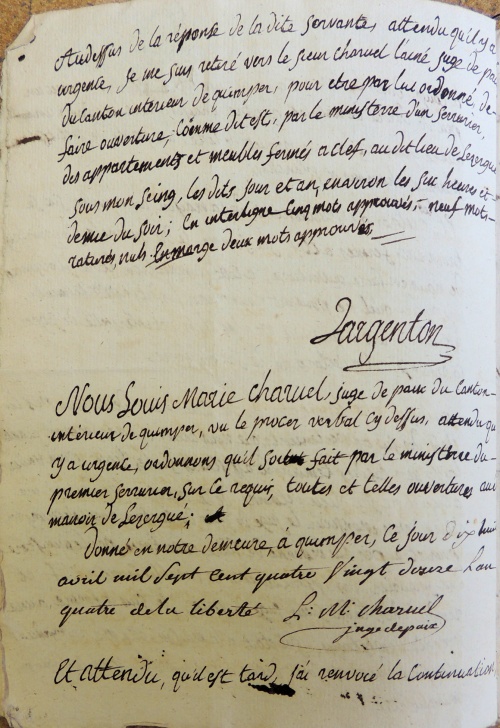 Audessus de la réponse de la dite servante, attendu qu'il y a
urgence, je me suis retiré vers le sieur charuel l'ainé juge de paix
du Canton intérieur de quimper, pour etre par lui ordonné de
faire ouverture, Comme dit est, par le ministerre d'un serrurier,
des appartements et meubles fermés a clef, au dit lieu de Lesergué
sous mon seing, les dits jour et an, environ les six heures et
demie du soir; En interligne Cinq mots approuvés, neuf mots
raturés, nuls. En marge deux mots approuvés
Jargenton
Nous Louis Marie Charuel, juge de paix du Canton
interieur de quimper, vu le procer verbal cy dessus, attendu qu
y a urgence, ordonnons qu'il soit fait par le ministerre du
premier serrurier, sur ce requis, toutes et telles ouvertures au
manoir de Lesergué;
donné en notre demeure, à quimper, Ce jour dix huit
avril mil sept cent quatre vingt douze L'an
quatre de la liberté L: M: Charuel
juge de paix
Et attendu, qu'il est tard, j'ai renvoié la Continuation